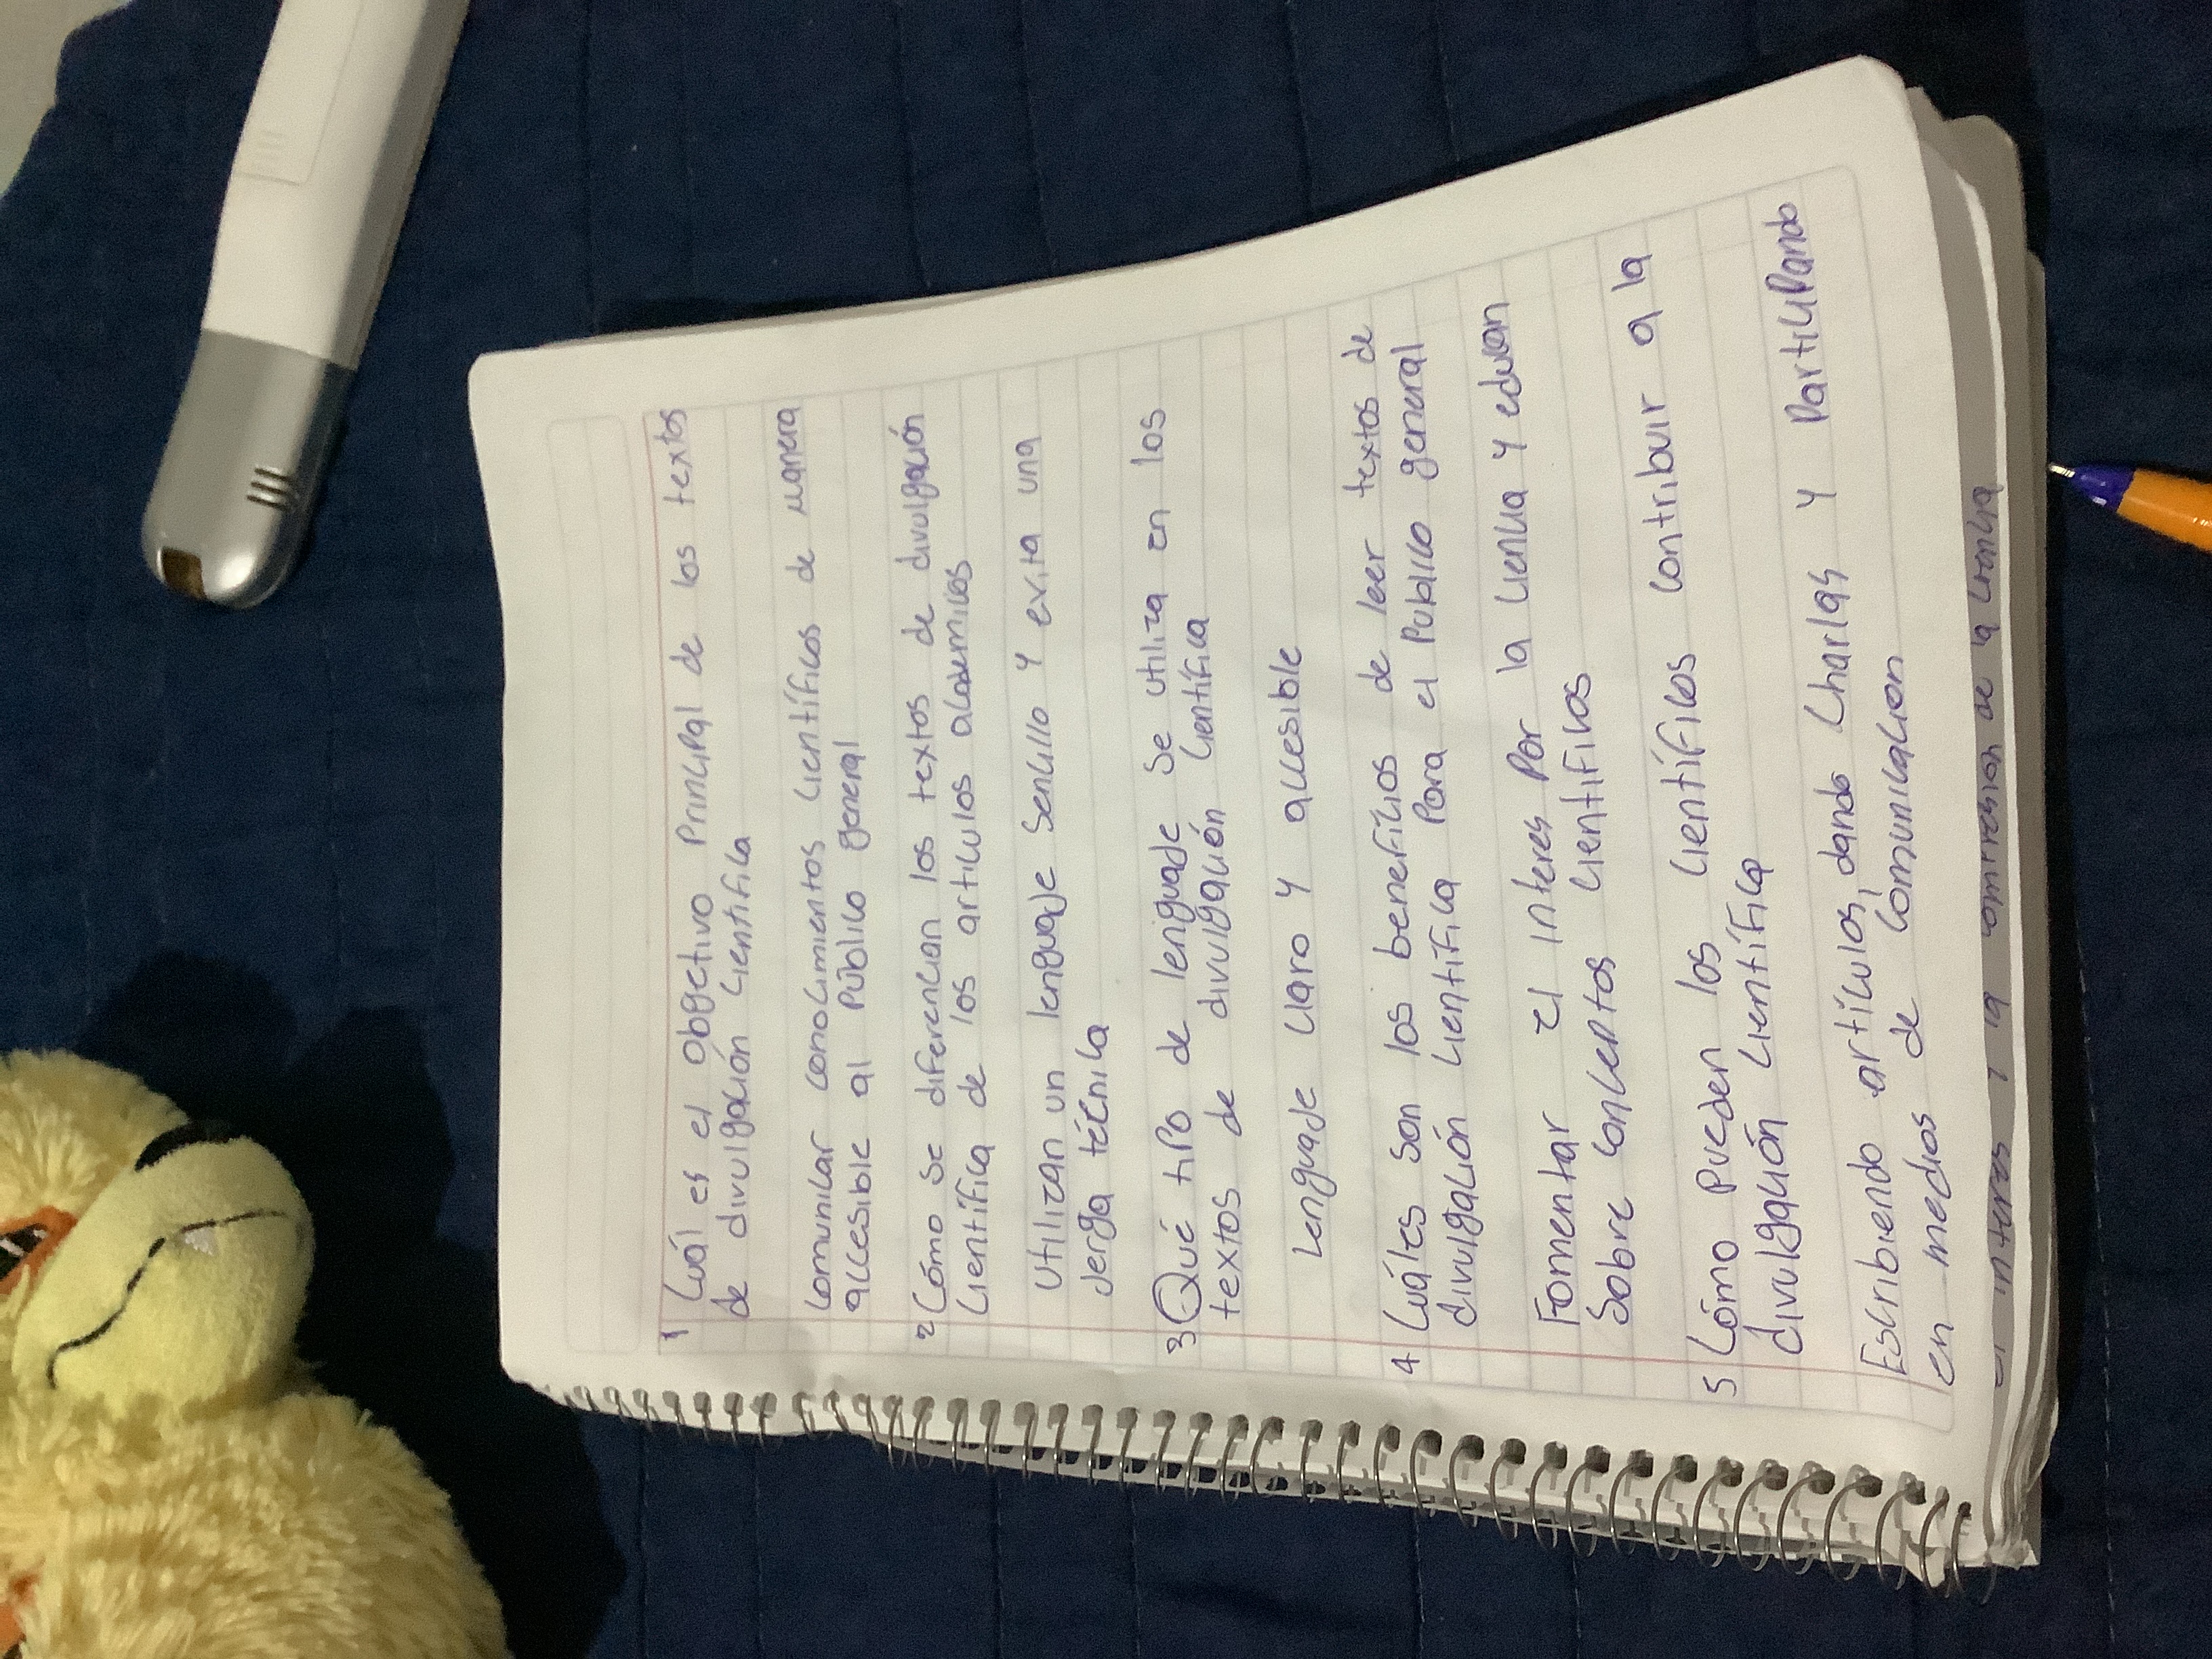 1 Cuál es el obgetivo Principal de los textos
de divulgación científica
comunicar conocimientos científicos de manera
accesible al Público general
2 Cómo se diferencian los textos de divulgación
científica de los artículos academicos
Utilizan un lenguaje sencillo y evita una
Jerga técnica
3 Qué tipo de lenguaje se utiliza en los
textos de divulgación científica
Lenguaje claro y accesible
4 Cuáles son los beneficios de leer textos de
divulgación científica Para el Público general
Fomentar el interes Por la ciencia y educan
Sobre conceptos científicos
5 Cómo Pueden los científicos contribuir a la
divulgación científica
Escribiendo artículos, dando charlas y Participando
en medios de comunicacion
interes la de la